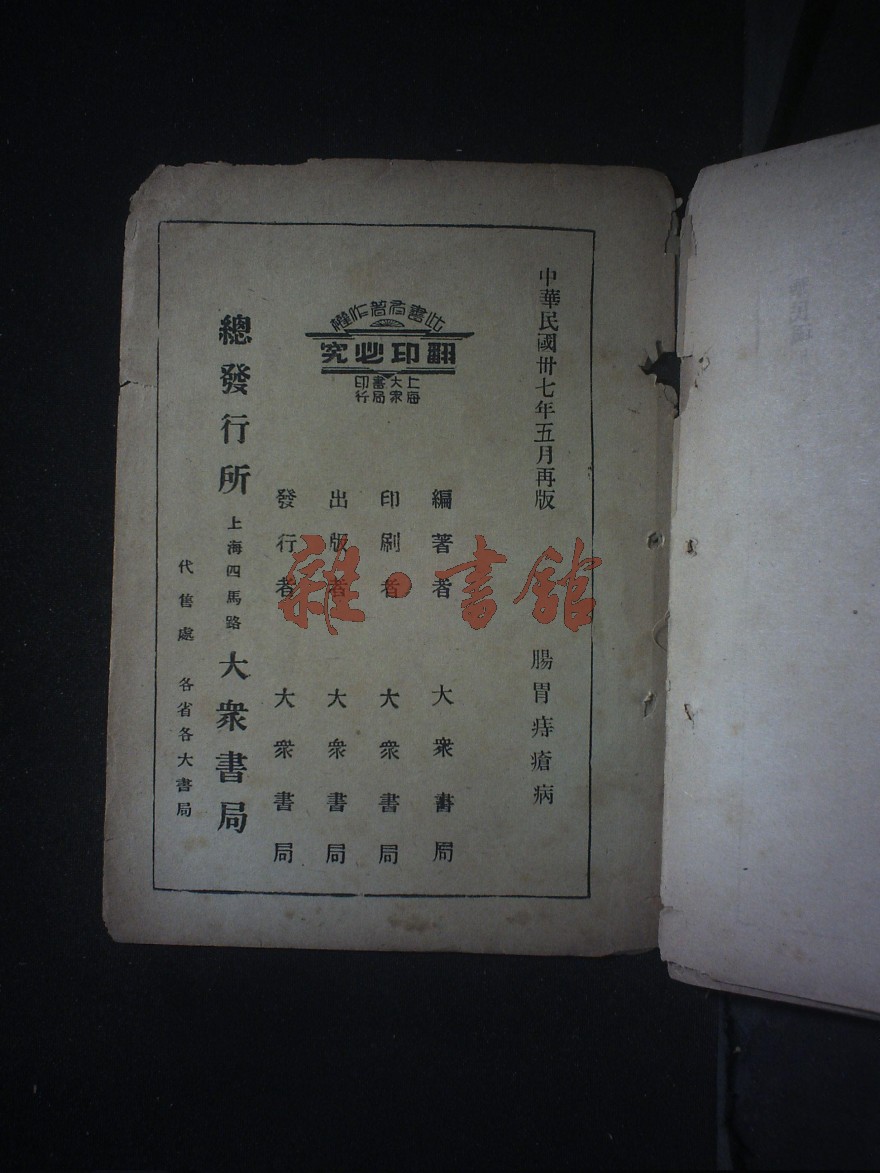 中華民國卅七年五月再版
腸胃痔瘡病
此書有著作權
翻印必究
上海
大眾
書局
印行
編著者 大眾書局
印刷者 大眾書局
出版者 大眾書局
發行者 大眾書局
總發行所 上海四馬路 大眾書局
代售處 各省各大書局
雜·書館